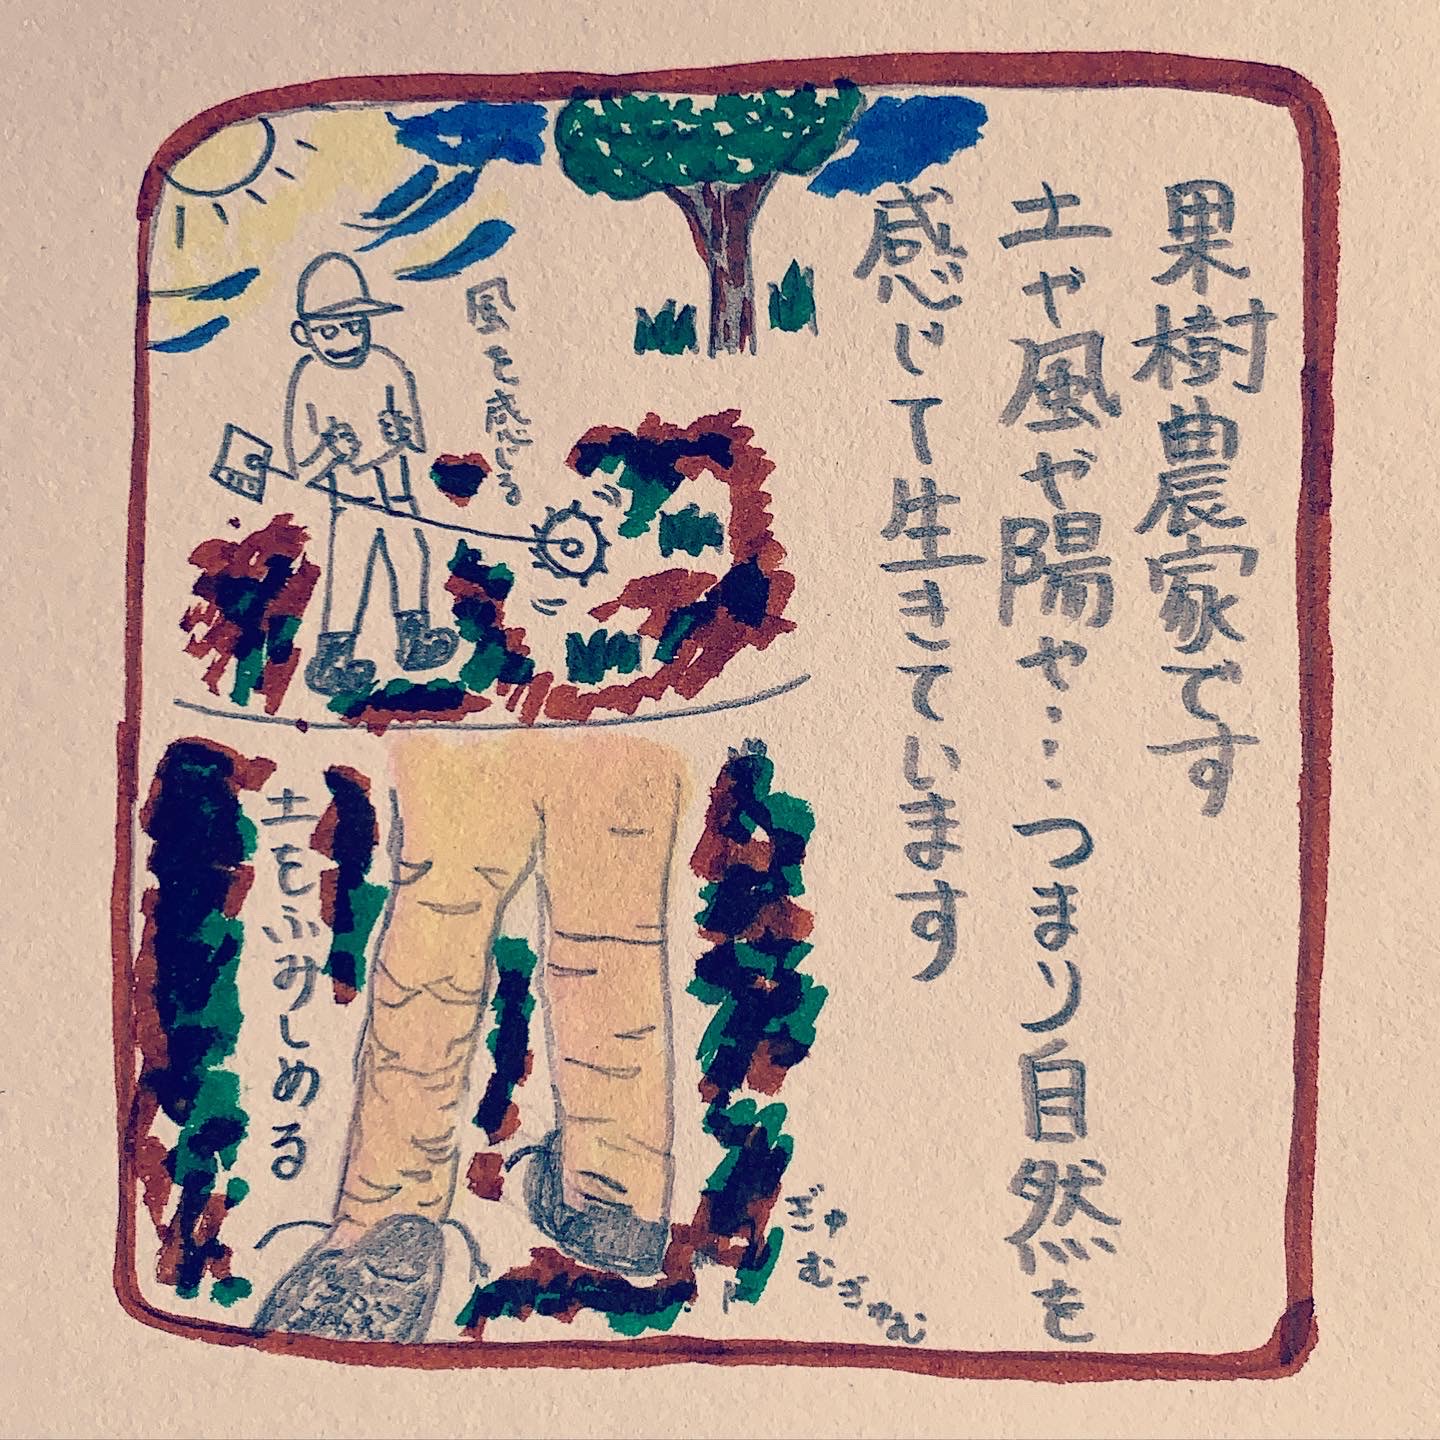 果樹農家です
土や風や陽や…つまり自然を
感じて生きています
風を感じる
土をふみしめる
ぎゅむぎゅむ